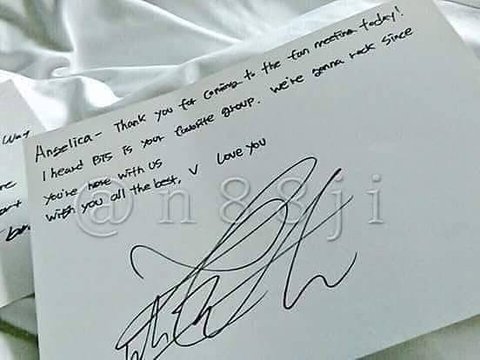 way
Angelica - Thank you for coming to the fan meeting today!
I heard BTS is your favorite group. We're gonna rock since
you're here with us
Wish you all the best, V Love you
@n88ji